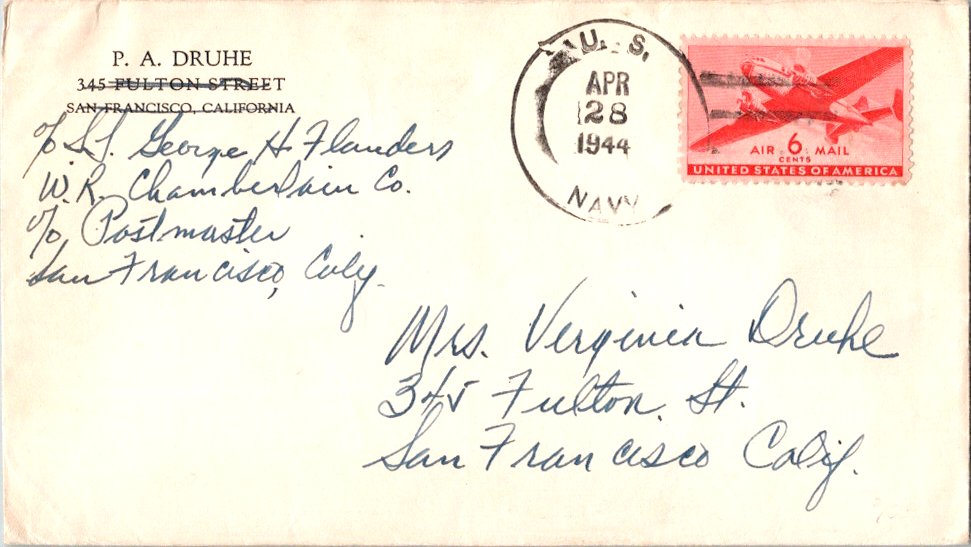 P. A. DRUHE
345 FULTON STREET
SAN FRANCISCO, CALIFORNIA
c/o S.S. George H Flanders
W. R. Chamberlain Co.
c/o Postmaster
San Francisco, Calif.
U. S.
APR
28
1944
NAVY
AIR 6 MAIL
CENTS
UNITED STATES OF AMERICA
Mrs. Verginia Druhe
345 Fulton St.
San Francisco Calif.